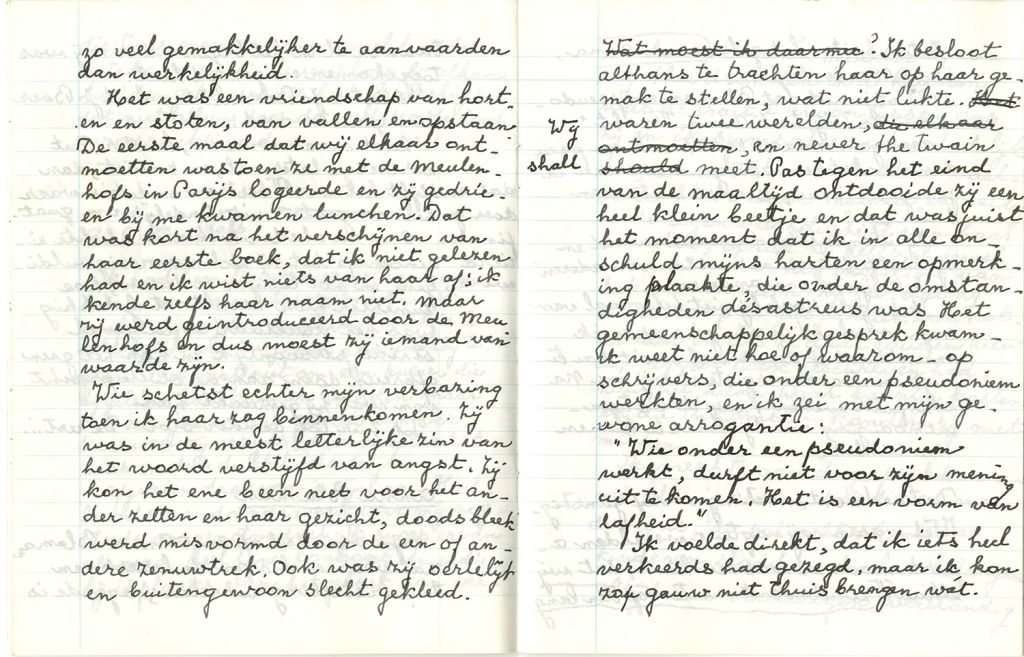 zo veel gemakkelijker te aanvaarden
dan werkelijkheid.
Het was een vriendschap van hort-
en en stoten, van vallen en opstaan.
De eerste maal dat wij elkaar ont-
moetten was toen ze met de Meulen-
hofs in Parijs logeerde en zij gedrie-
en bij me kwamen lunchen. Dat
was kort na het verschijnen van
haar eerste boek, dat ik niet gelezen
had en ik wist niets van haar af; ik
kende zelfs haar naam niet. Maar
zij werd geïntroduceerd door de Meu-
lenhofs en dus moest zij iemand van
waarde zijn.
Wie schetst echter mijn verbazing
toen ik haar zag binnenkomen. Zij
was in de meest letterlijke zin van
het woord verstijfd van angst. Zij
kon het ene been niet voor het an-
der zetten en haar gezicht, doodsbleek
werd misvormd door de een of an-
dere zenuwtrek. Ook was zij oerlelijk
en buitengewoon slecht gekleed.
Wat moest ik daarmee? Ik besloot
althans te trachten haar op haar ge-
mak te stellen, wat niet lukte. Het
Wij waren twee werelden, die elkaar
ontmoetten, en never the twain
shall should meet. Pas tegen het eind
van de maaltijd ontdooide zij een
heel klein beetje en dat was juist
het moment dat ik in alle on-
schuld mijns harten een opmerk-
ing plaatste, die onder de omstan-
digheden desastreus was. Het
gemeenschappelijk gesprek kwam -
ik weet niet hoe of waarom - op
schrijvers, die onder een pseudoniem
werkten, en ik zei met mijn ge-
wone arrogantie:
"Wie onder een pseudoniem
werkt, durft niet voor zijn mening
uit te komen. Het is een vorm van
lafheid."
Ik voelde direkt, dat ik iets heel
verkeerds had gezegd, maar ik kon
zo gauw niet thuisbrengen wát.